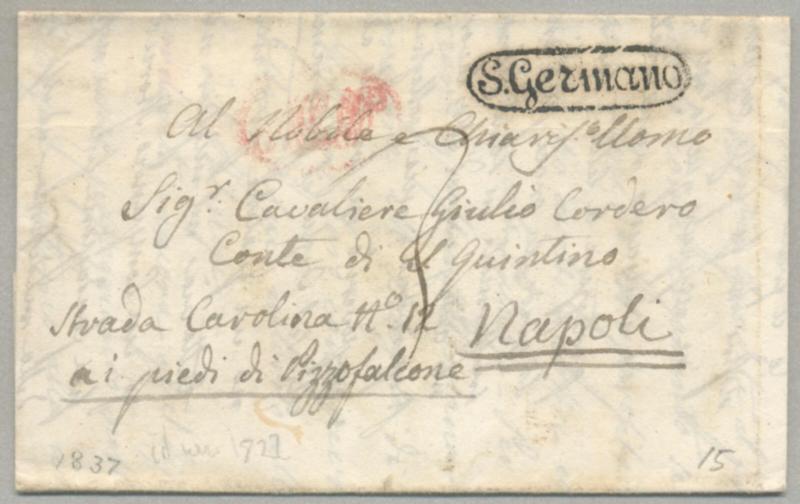 S. Germano
Al Nobile e Chiaris.º Uomo
Sig.r Cavaliere Giulio Cordero
Conte di S Quintino
Strada Carolina Nº. 12 Napoli
a i piedi di Pizzofalcone
1837
15